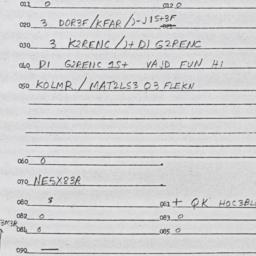 011 0 012 0
020 3 DOR3F/KFAR/
030 3 K2RENC/)+ DI G2RENC
040 DI G2RENC 1S+ VAJD FUN HI
050 KOLMR/MAT2LS3 03 FLEKN
060 0
070 NE5X83R
080 8 081 + QK HOC3BL
082 0 083 0
084 0 085 0
090 —